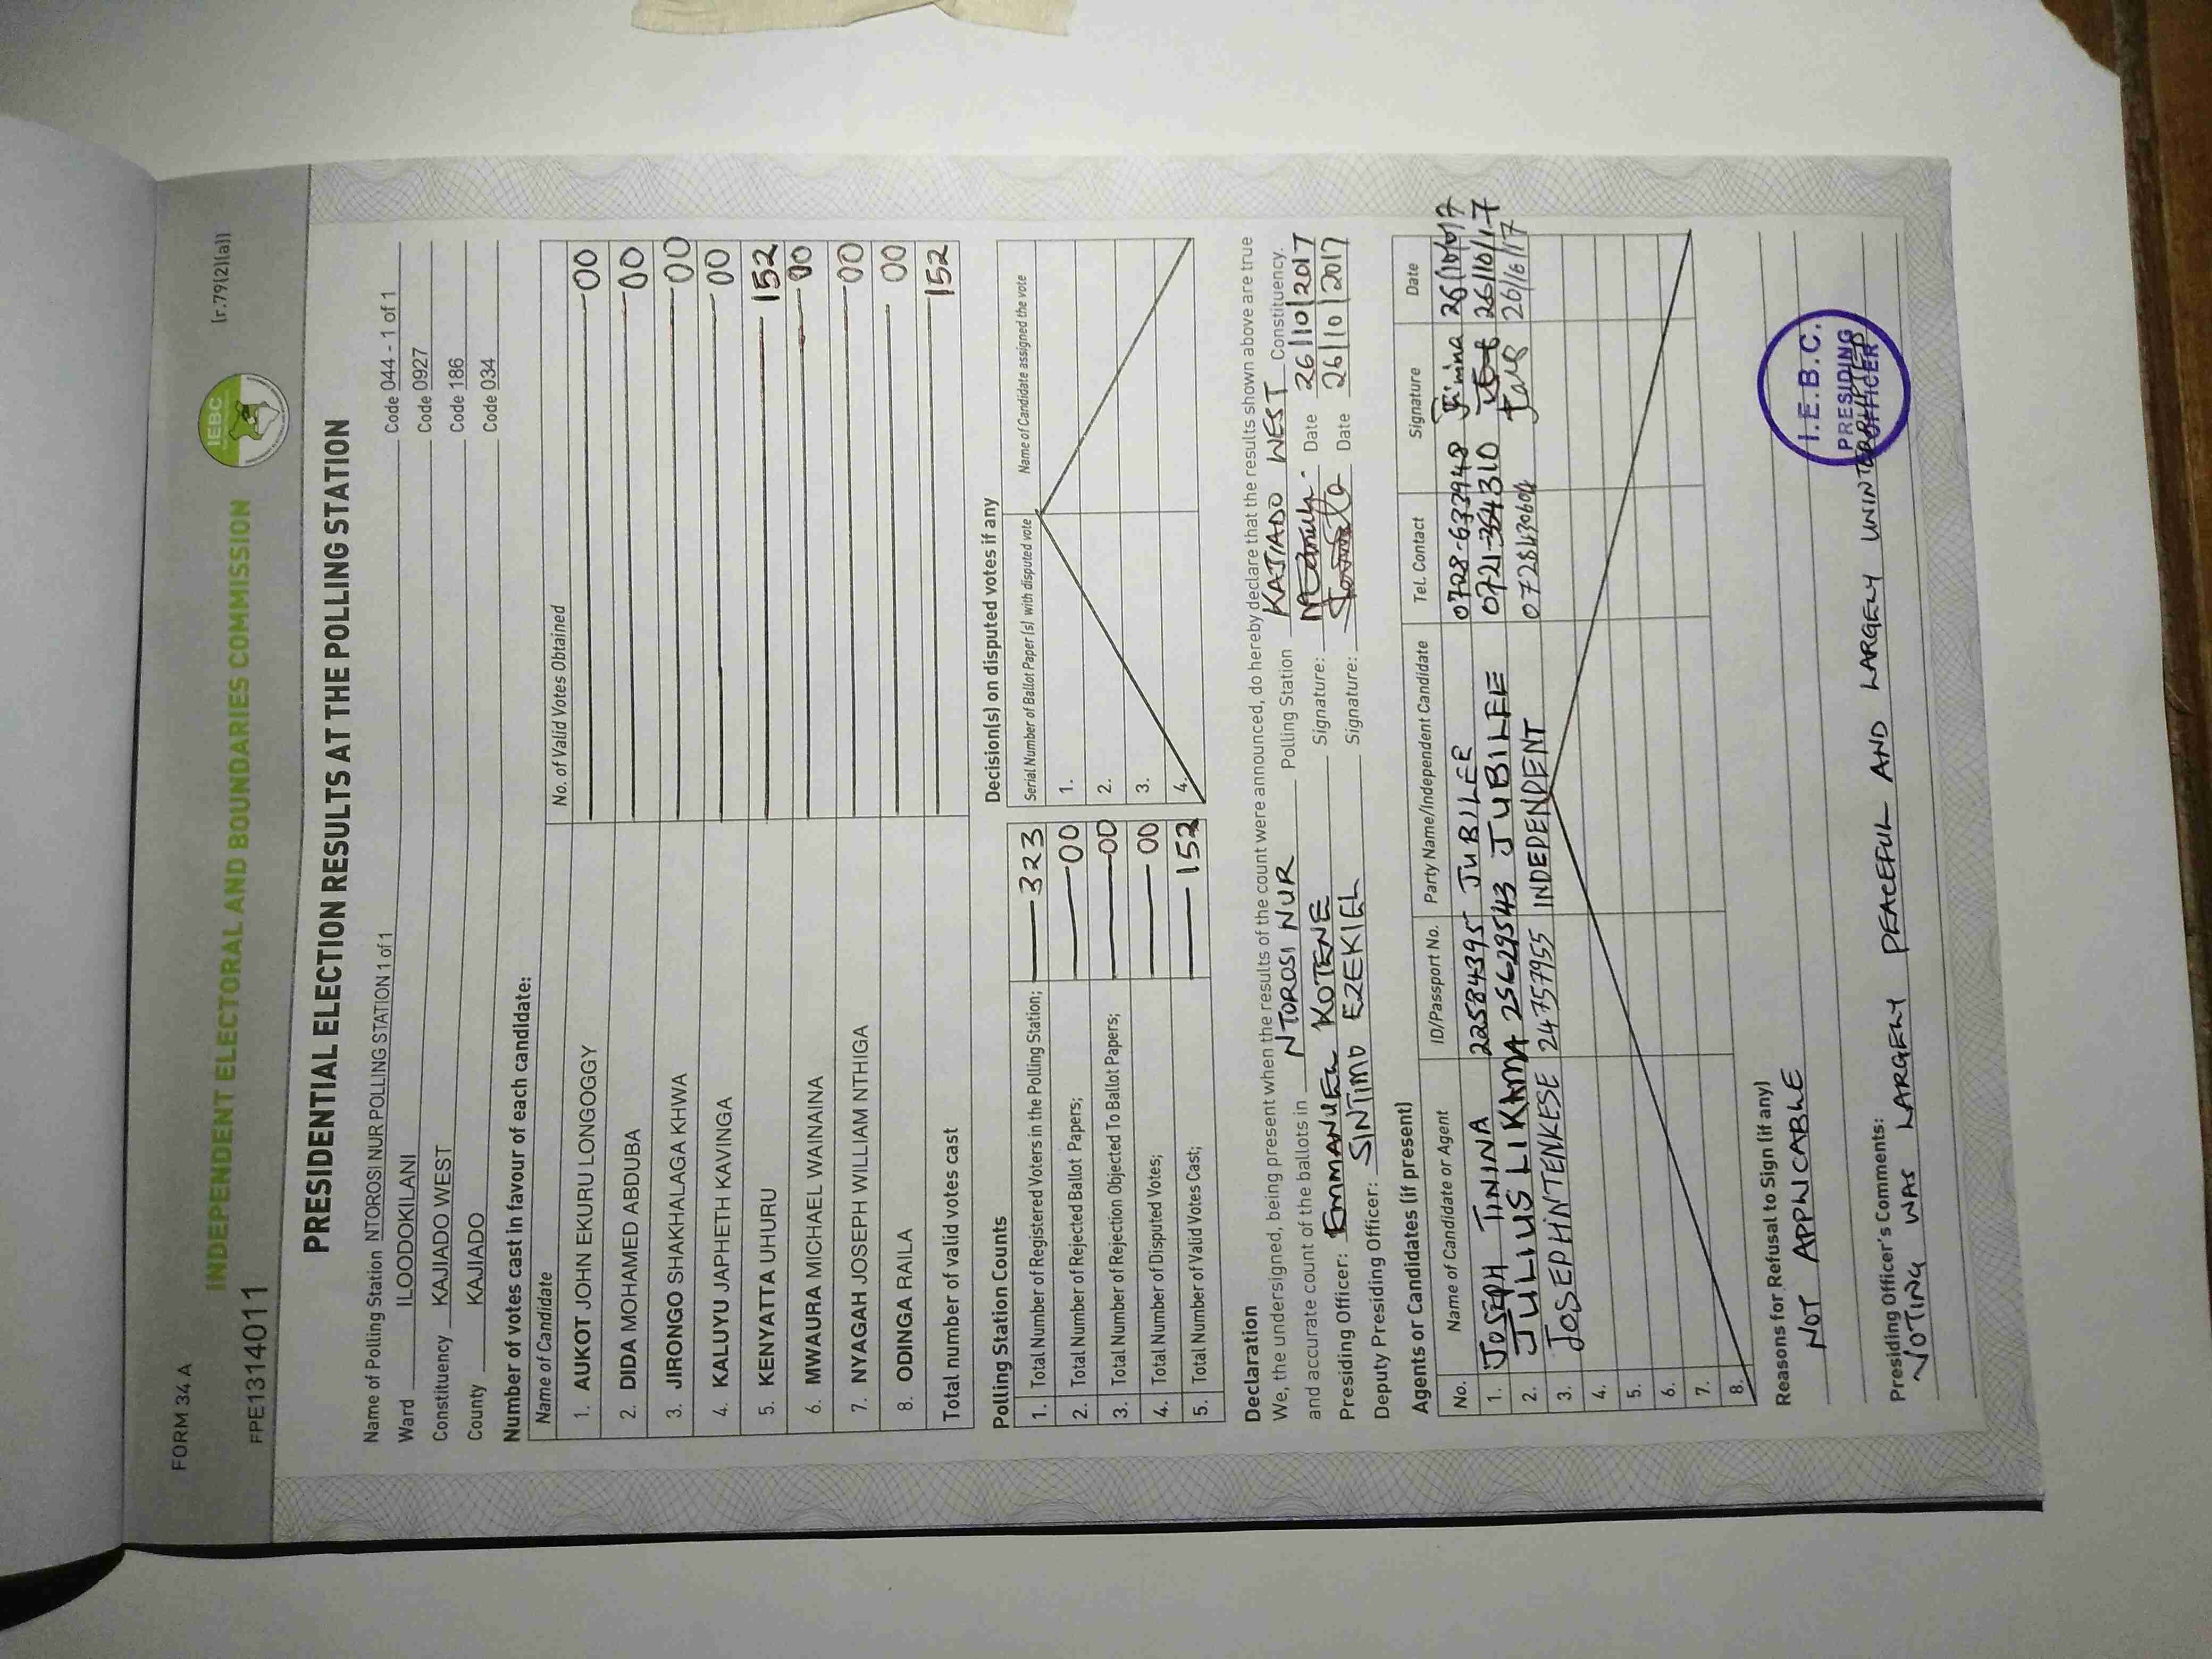 FORM 34 A
FPE1314011
INDEPENDENT ELECTORAL AND BOUNDARIES COMMISSION
IEBC
(r.79(2)(a))
PRESIDENTIAL ELECTION RESULTS AT THE POLLING STATION
Name of Polling Station NTOROSI NUR POLLING STATION 1 of 1 Code 044 - 1 of 1
Ward ILOODOKILANI Code 0927
Constituency KAJIADO WEST Code 186
County KAJIADO Code 034
Number of votes cast in favour of each candidate:
Name of Candidate No. of Valid Votes Obtained
1. AUKOT JOHN EKURU LONGOGGY 00
2. DIDA MOHAMED ABDUBA 00
3. JIRONGO SHAKHALAGA KHWA 00
4. KALUYU JAPHETH KAVINGA 00
5. KENYATTA UHURU 152
6. MWAURA MICHAEL WAINAINA 00
7. NYAGAH JOSEPH WILLIAM NTHIGA 00
8. ODINGA RAILA 00
Total number of valid votes cast 152
Polling Station Counts
1. Total Number of Registered Voters in the Polling Station; 323
2. Total Number of Rejected Ballot Papers; 00
3. Total Number of Rejection Objected To Ballot Papers; 00
4. Total Number of Disputed Votes; 00
5. Total Number of Valid Votes Cast; 152
Decision(s) on disputed votes if any
Serial Number of Ballot Paper (s) with disputed vote Name of Candidate assigned the vote
1.
2.
3.
4.
Declaration
We, the undersigned, being present when the results of the count were announced, do hereby declare that the results shown above are true
and accurate count of the ballots in NTOROSI NUR Polling Station KAJIADO WEST Constituency.
Presiding Officer: EMMANUEL KOTENE Signature: Date 26/10/2017
Deputy Presiding Officer: SINTIMO EZEKIEL Signature: Date 26/10/2017
Agents or Candidates (if present)
No. Name of Candidate or Agent ID/Passport No. Party Name/Independent Candidate Tel. Contact Signature Date
1. JOSEPH TININA 22584395 JUBILEE 0728-633948 26/10/17
2. JULIUS LIKAMA 25629543 JUBILEE 0721-354310 26/10/17
3. JOSEPHINTENKESE 24757955 INDEPENDENT
4.
5.
6.
7.
8.
Reasons for Refusal to Sign (if any)
NOT APPLICABLE
Presiding Officer's Comments:
VOTING WAS LARGELY PEACEFUL AND LARGELY UNINTERRUPTED
I.E.B.C.
PRESIDING
OFFICER